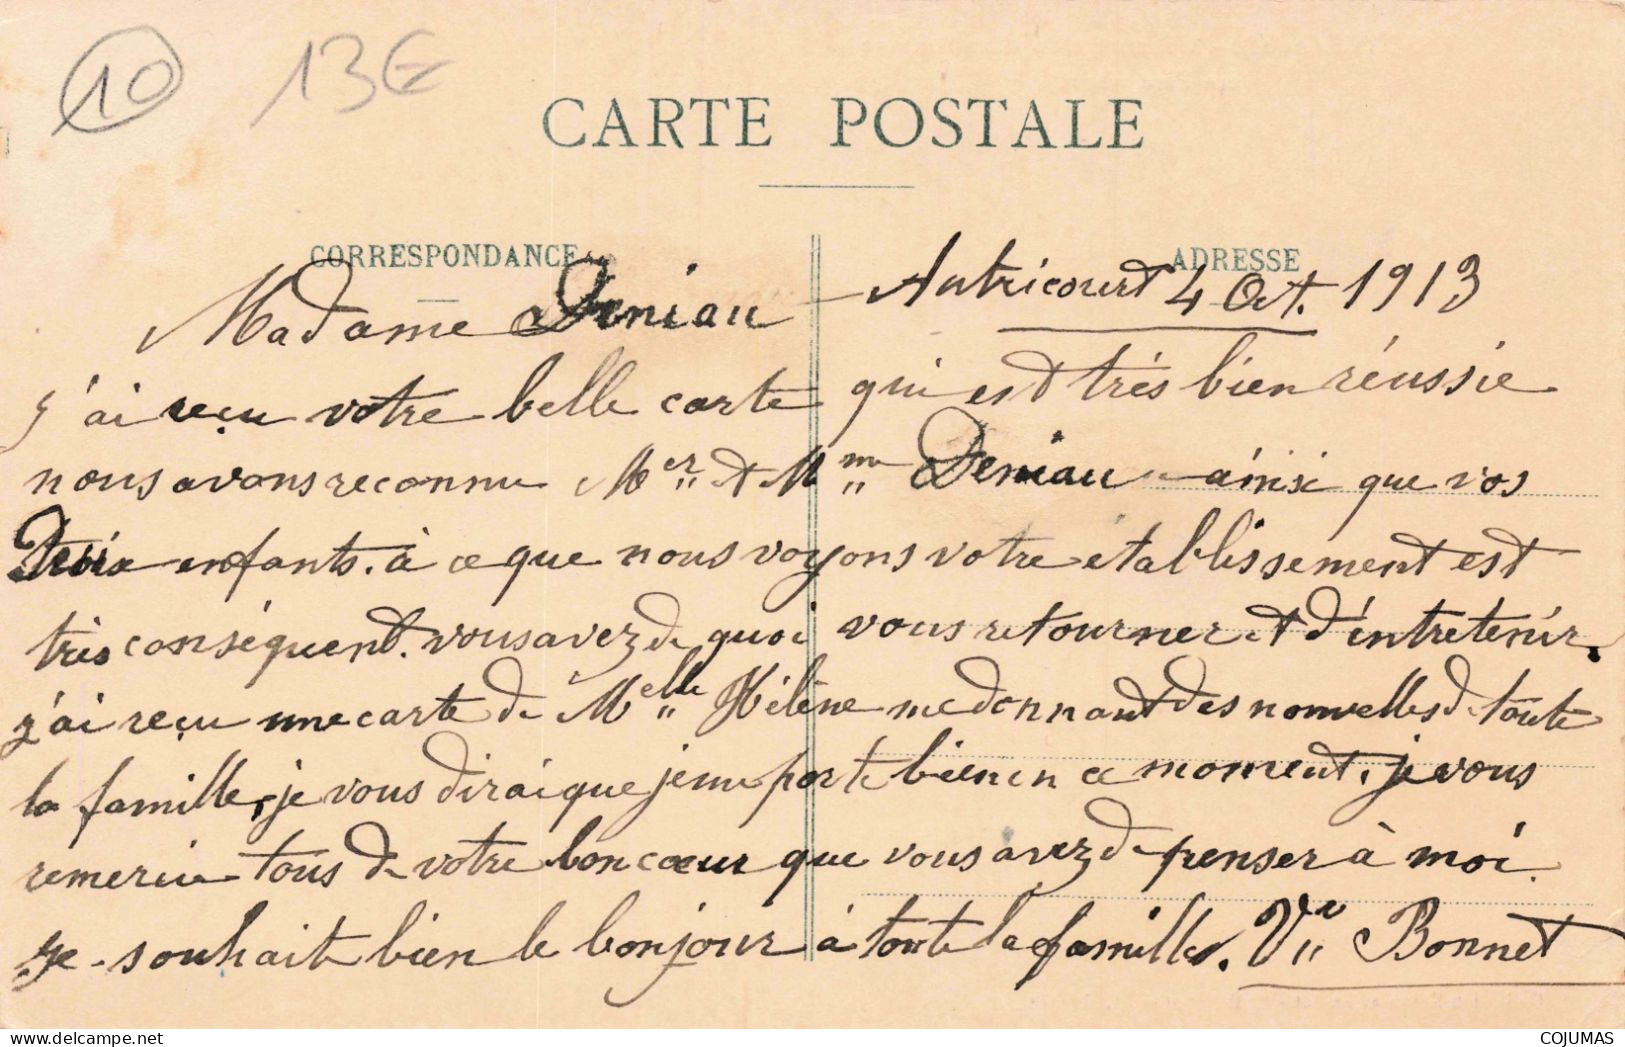 10 13€
CARTE POSTALE
CORRESPONDANCE
ADRESSE
Autricourt 4 Oct. 1913
Madame Deniau
j'ai reçu votre belle carte qui est très bien réussie
nous avons reconnu Mer et Mme Deniau ainsi que vos
enfants. à ce que nous voyons votre établissement est
très conséquent. vous avez de quoi vous retourner et d'entretenir.
j'ai reçu une carte de Melle Hélène me donnant des nouvelles de toute
la famille, je vous dirai que je me porte bien en ce moment, je vous
remercie tous de votre bon cœur que vous avez de penser à moi.
Je souhait bien le bonjour à toute la famille. Ve Bonnet
COJUMAS
www.delcampe.net